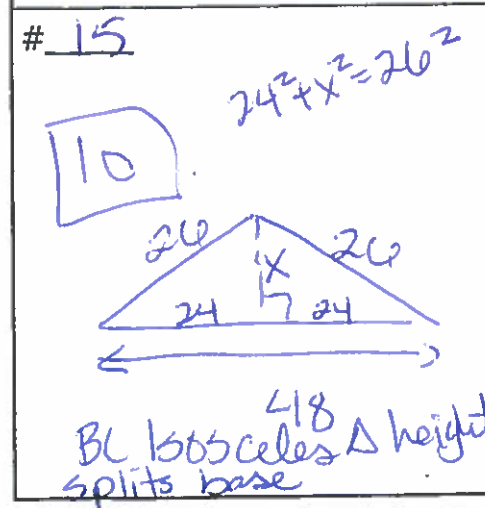 # 15
24² + x² = 26²
10
26 26
x
24 24
48
BC Isosceles Δ height
splits base